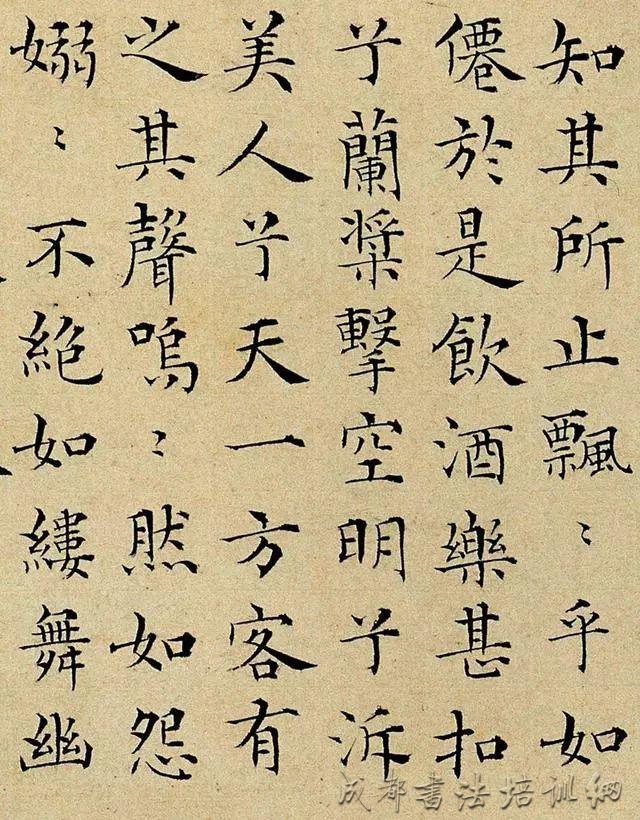 知其所止飄〻乎如
僊於是飲酒樂甚扣
兮蘭槳擊空明兮泝
美人兮天一方客有
之其聲嗚〻然如怨
嫋〻不絕如縷舞幽
成都書法培訓網